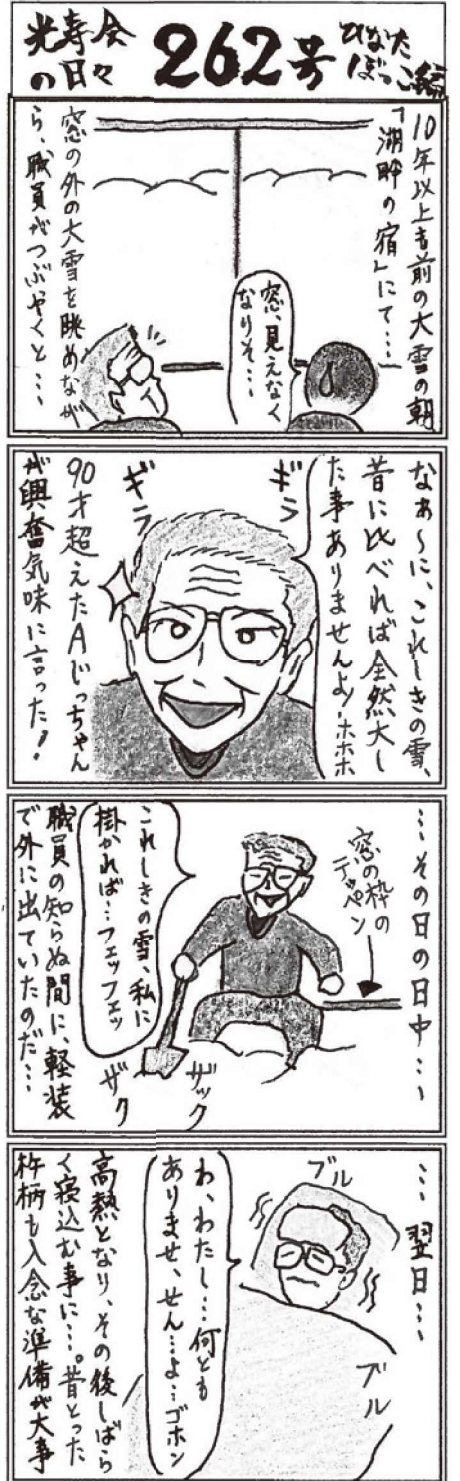 光寿会
の日々
262号
ひなた
ぼっこ編
10年以上も前の大雪の朝
「湖畔の宿」にて…
窓、見えなく
なりそ…
窓の外の大雪を眺めなが
ら、職員がつぶやくと…
なぁ〜に、これしきの雪、
昔に比べれば全然大し
た事ありませんよ!ホホホ
ギラ
ギラ
90才超えたAじっちゃん
が興奮気味に言った!
…その日の日中…
窓の枠の
テッペン
これしきの雪、私に
掛かれば…フェッフェッ
ザック
ザク
職員の知らぬ間に、軽装
で外に出ていたのだ…
…翌日…
ブル
ブル
わ、わたし…何とも
ありませ、せん…よ…ゴホン
高熱となり、その後しばら
く寝込む事に…。昔とった
杵柄も入念な準備が大事